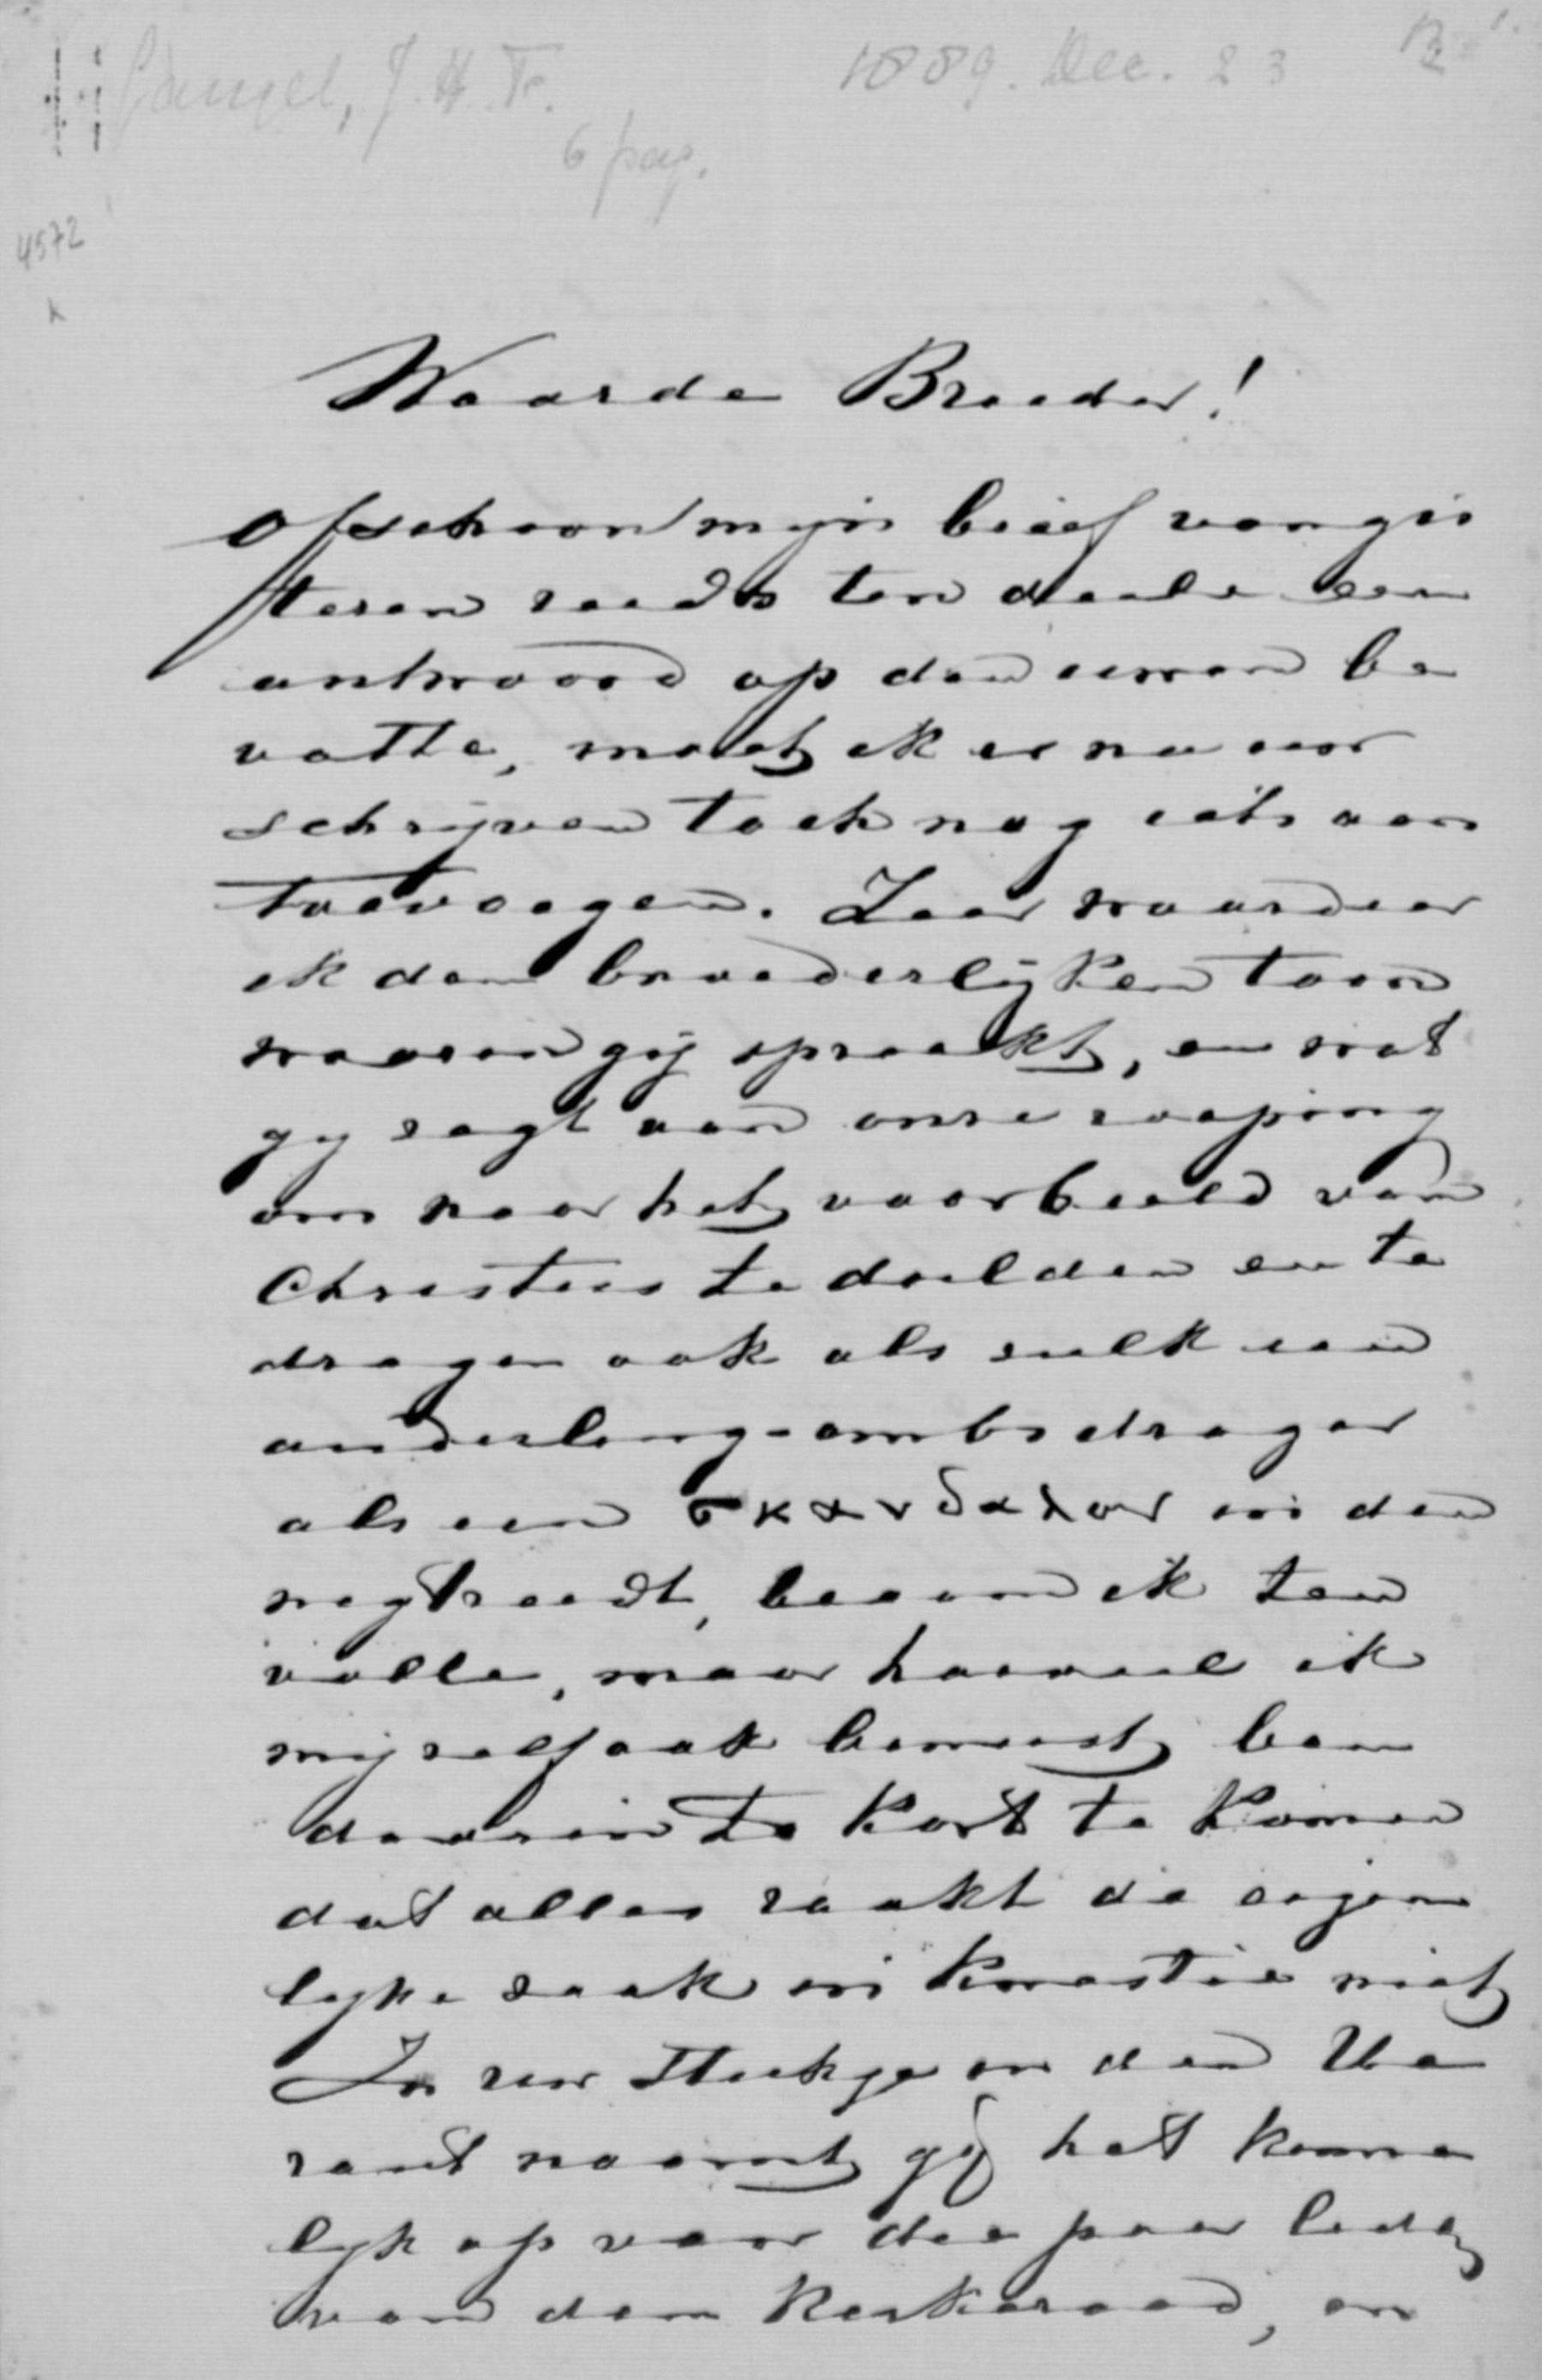 J. H. Fr. 1889. Dec. 23
6 pag.
4572
k
Waarde Broeder!
Ofschoon mijn brief van gis
teren reeds ten deele een
antwoord op den uwen be
vatte, moet ik er na uw
schrijven toch nog iets aan
toevoegen. Zeer waardeer
ik den broederlijken toon
waarin gij spreekt, en wat
gij zegt van onze roeping
om naar het voorbeeld van
Christus te dulden en te
dragen ook als zulk een
ouderling-ambtsdrager
als een σκανδαλον in den
weg treedt, beaam ik ten
volle, maar hoewel ik
mij zelf ook bewust ben
daarin te kort te komen
dat alles raakt de eigen
lijke zaak in kwestie niet
In uw stukje in den He
raut naamt gij het konne
lijk op voor die paar leden
van den kerkeraad, en